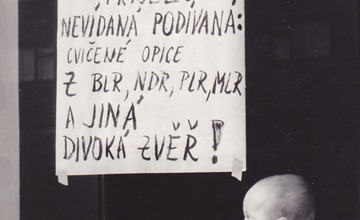 NEVÍDANÁ PODÍVANÁ:
CVIČENÉ OPICE
Z BLR, NDR, PLR, MLR
A JINÁ
DIVOKÁ ZVĚŘ!